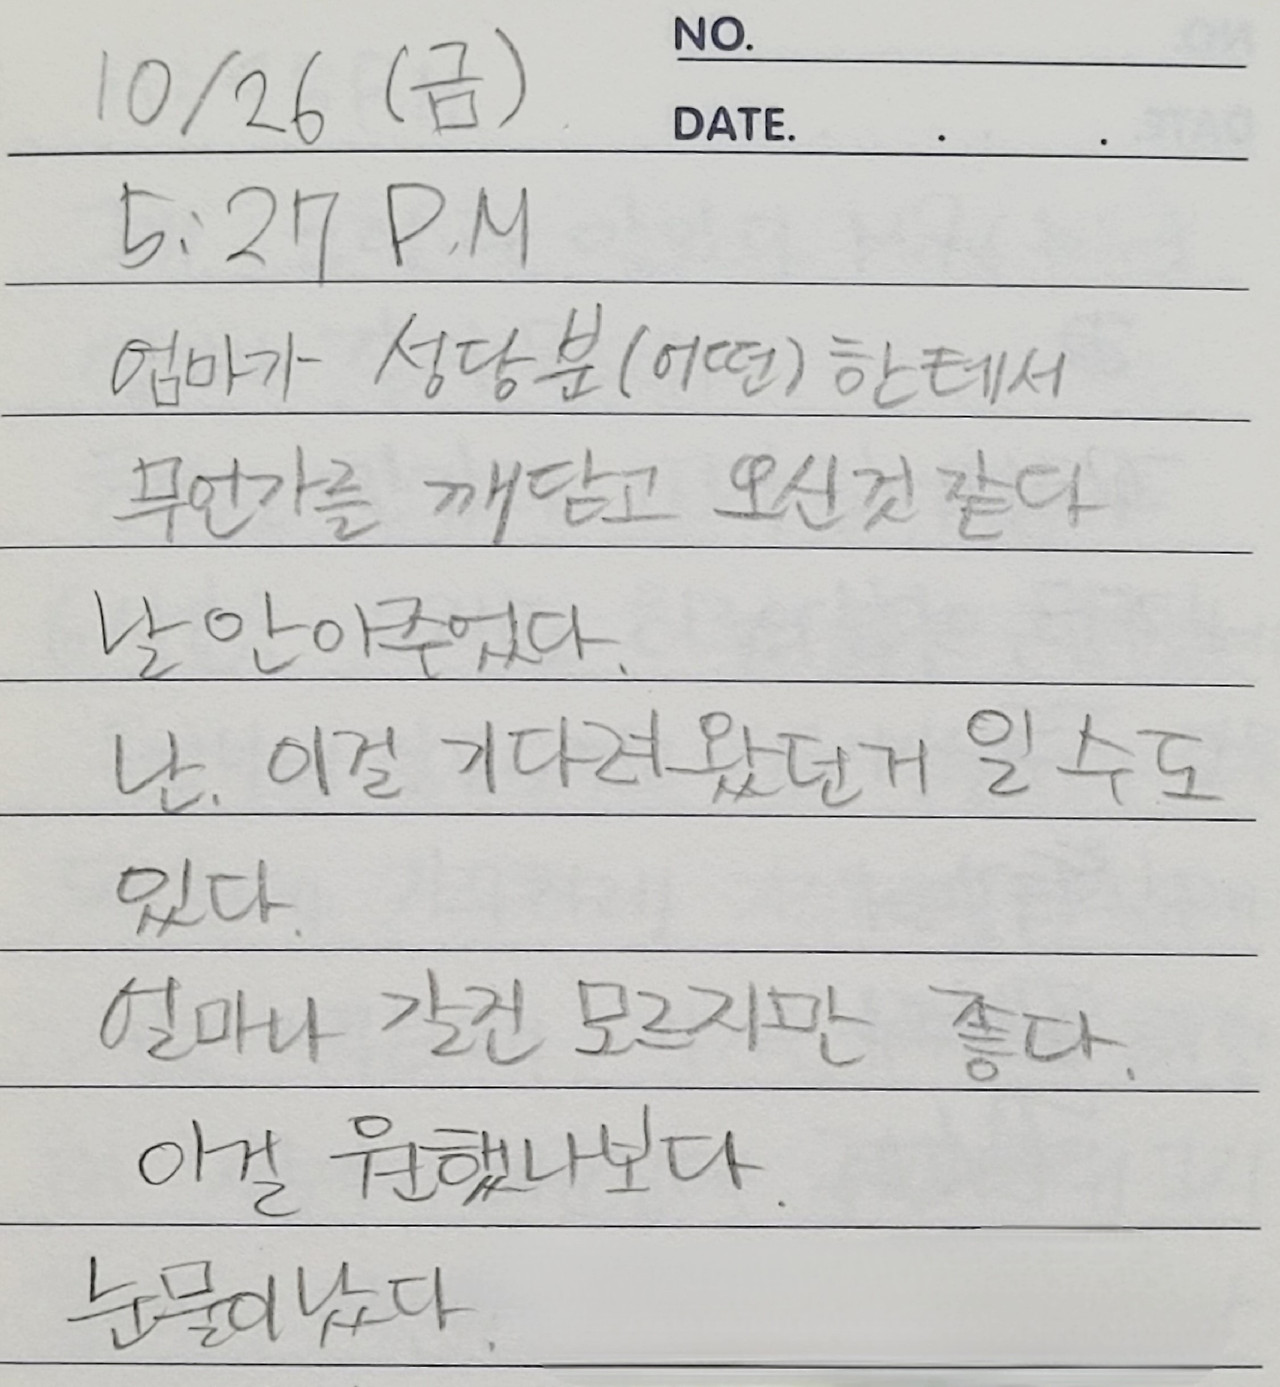 NO.
10/26 (금)
DATE. . .
5:27 P.M
엄마가 성당분(어떤)한테서
무언가를 깨닫고 오신것 같다
날 안아주었다.
난. 이걸 기다려왔던거 일 수도
있다.
얼마나 갈진 모르지만 좋다.
이걸 원했나보다.
눈물이 났다.